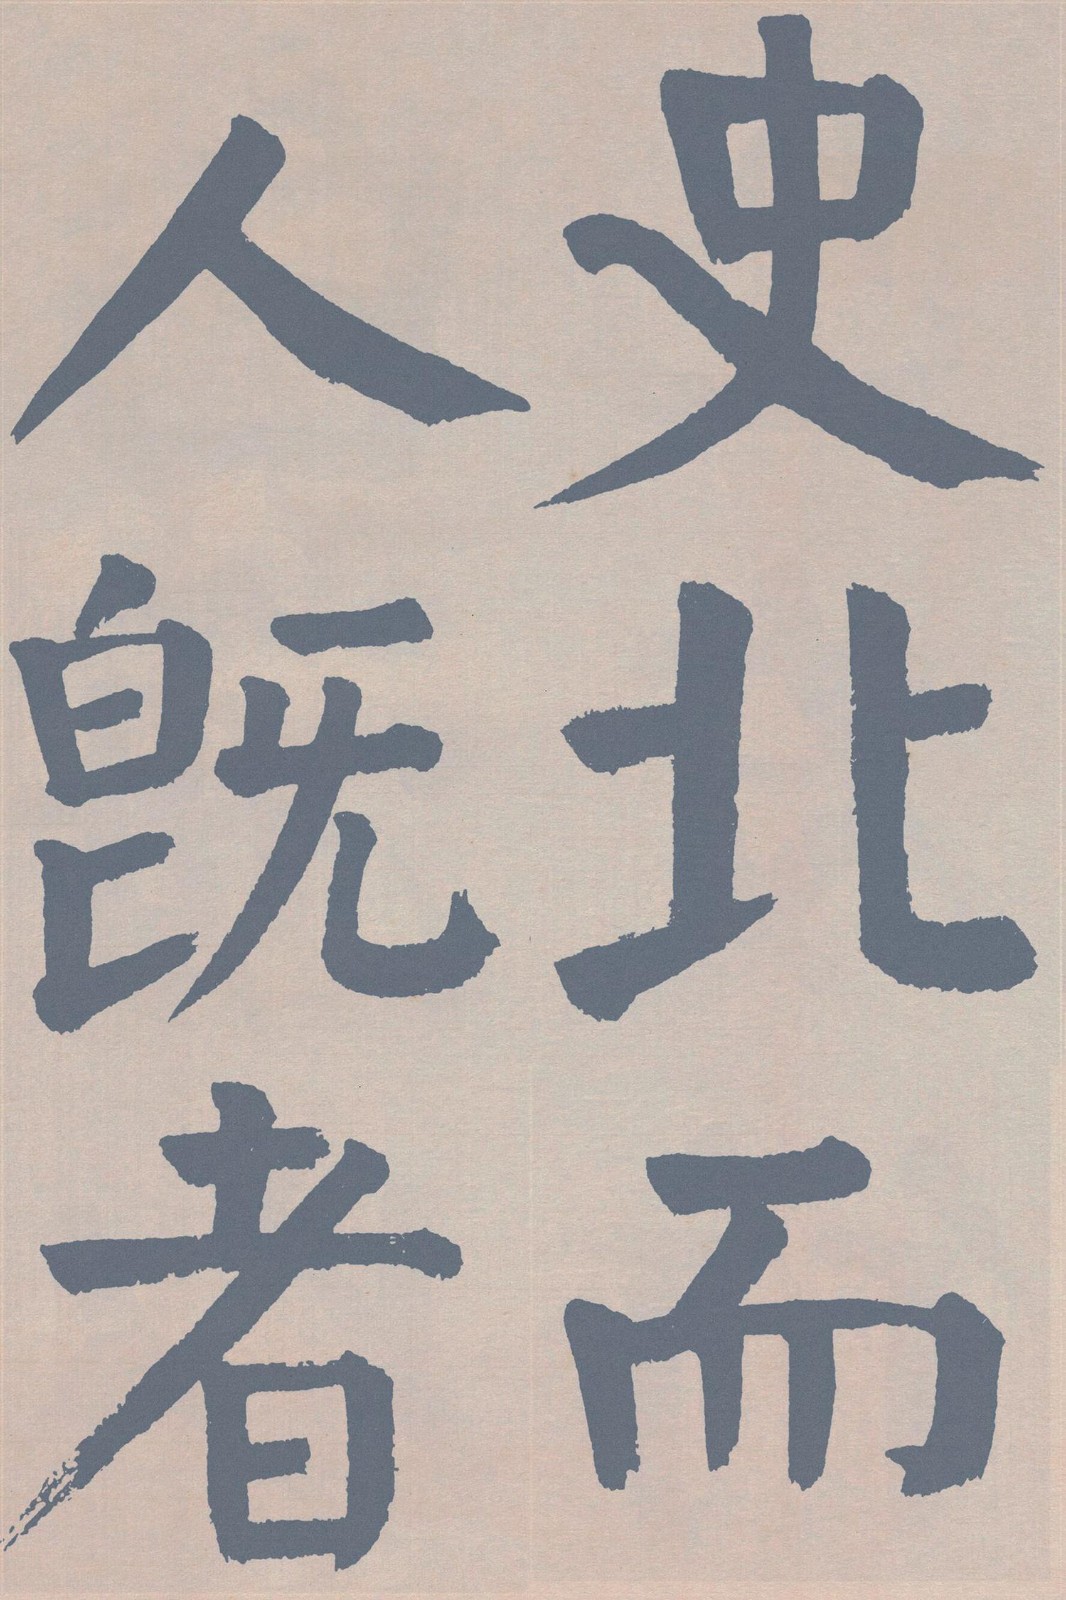 史北而
人既者